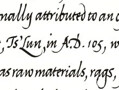 nally attributed to an
, Ts'Lun, in A.D. 105, w
as raw materials, rags,